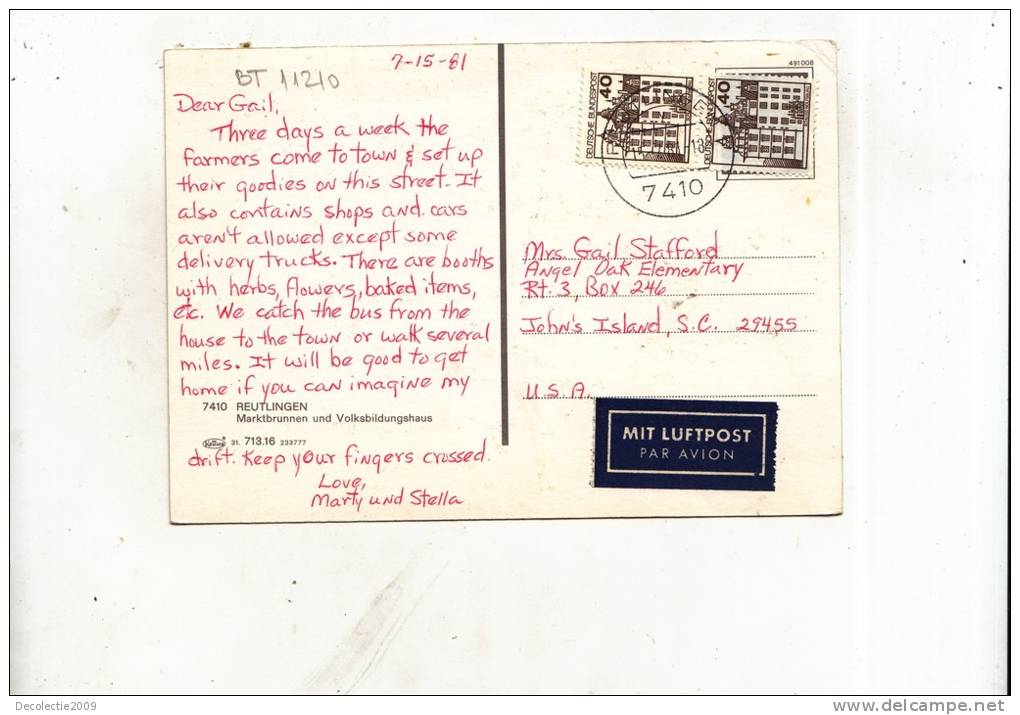 7-15-81
BT 11210
Dear Gail,
Three days a week the
farmers come to town & set up
their goodies on this street. It
also contains shops and cars
aren't allowed except some
delivery trucks. There are booths
with herbs, flowers, baked items,
etc. We catch the bus from the
house to the town or walk several
miles. It will be good to get
home if you can imagine my
7410 REUTLINGEN
Marktbrunnen und Volksbildungshaus
31. 713.16 233777
drift. Keep your fingers crossed.
Love,
Marty und Stella
491008
40
DEUTSCHE BUNDESPOST
40
DEUTSCHE BUNDESPOST
7410
Mrs. Gail Stafford
Angel Oak Elementary
Rt. 3, Box 246
John's Island, S.C. 29455
U.S.A.
MIT LUFTPOST
PAR AVION
Decolectie2009
www.delcampe.net